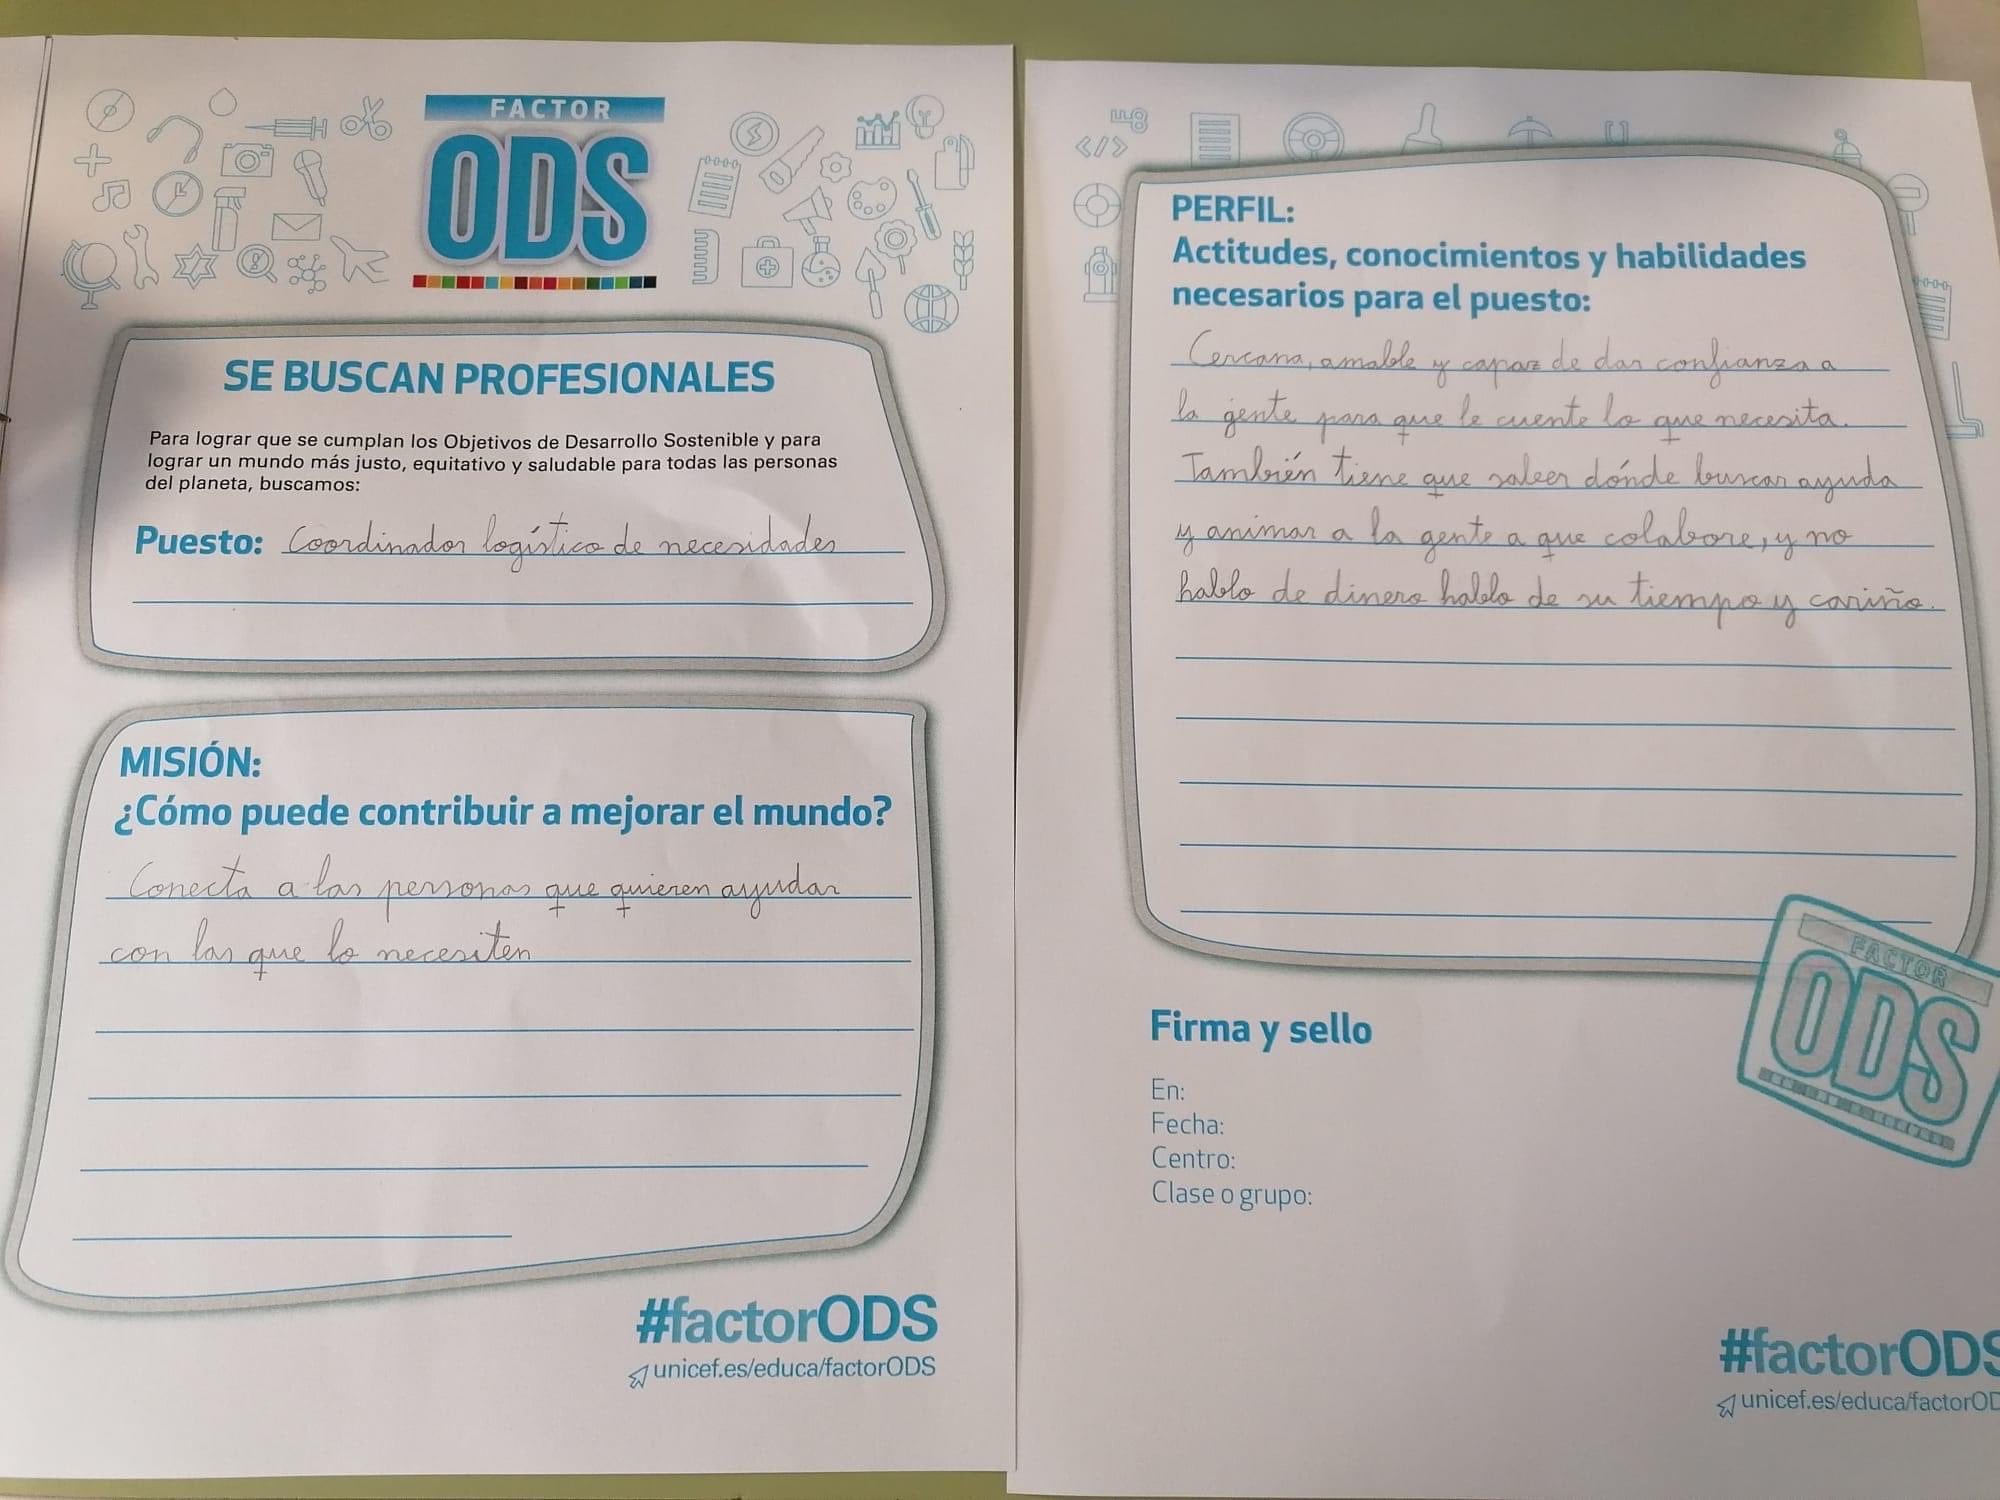 FACTOR
ODS
SE BUSCAN PROFESIONALES
Para lograr que se cumplan los Objetivos de Desarrollo Sostenible y para
lograr un mundo más justo, equitativo y saludable para todas las personas
del planeta, buscamos:
Puesto: Coordinador logístico de necesidades
MISIÓN:
¿Cómo puede contribuir a mejorar el mundo?
Conecta a las personas que quieren ayudar
con las que lo necesiten
#factorODS
unicef.es/educa/factorODS
PERFIL:
Actitudes, conocimientos y habilidades
necesarios para el puesto:
Cercana, amable y capaz de dar confianza a
la gente para que le cuente lo que necesita.
También tiene que saber dónde buscar ayuda
y animar a la gente a que colabore, y no
hablo de dinero hablo de su tiempo y cariño.
FACTOR
ODS
Firma y sello
En:
Fecha:
Centro:
Clase o grupo:
#factorODS
unicef.es/educa/factorOD